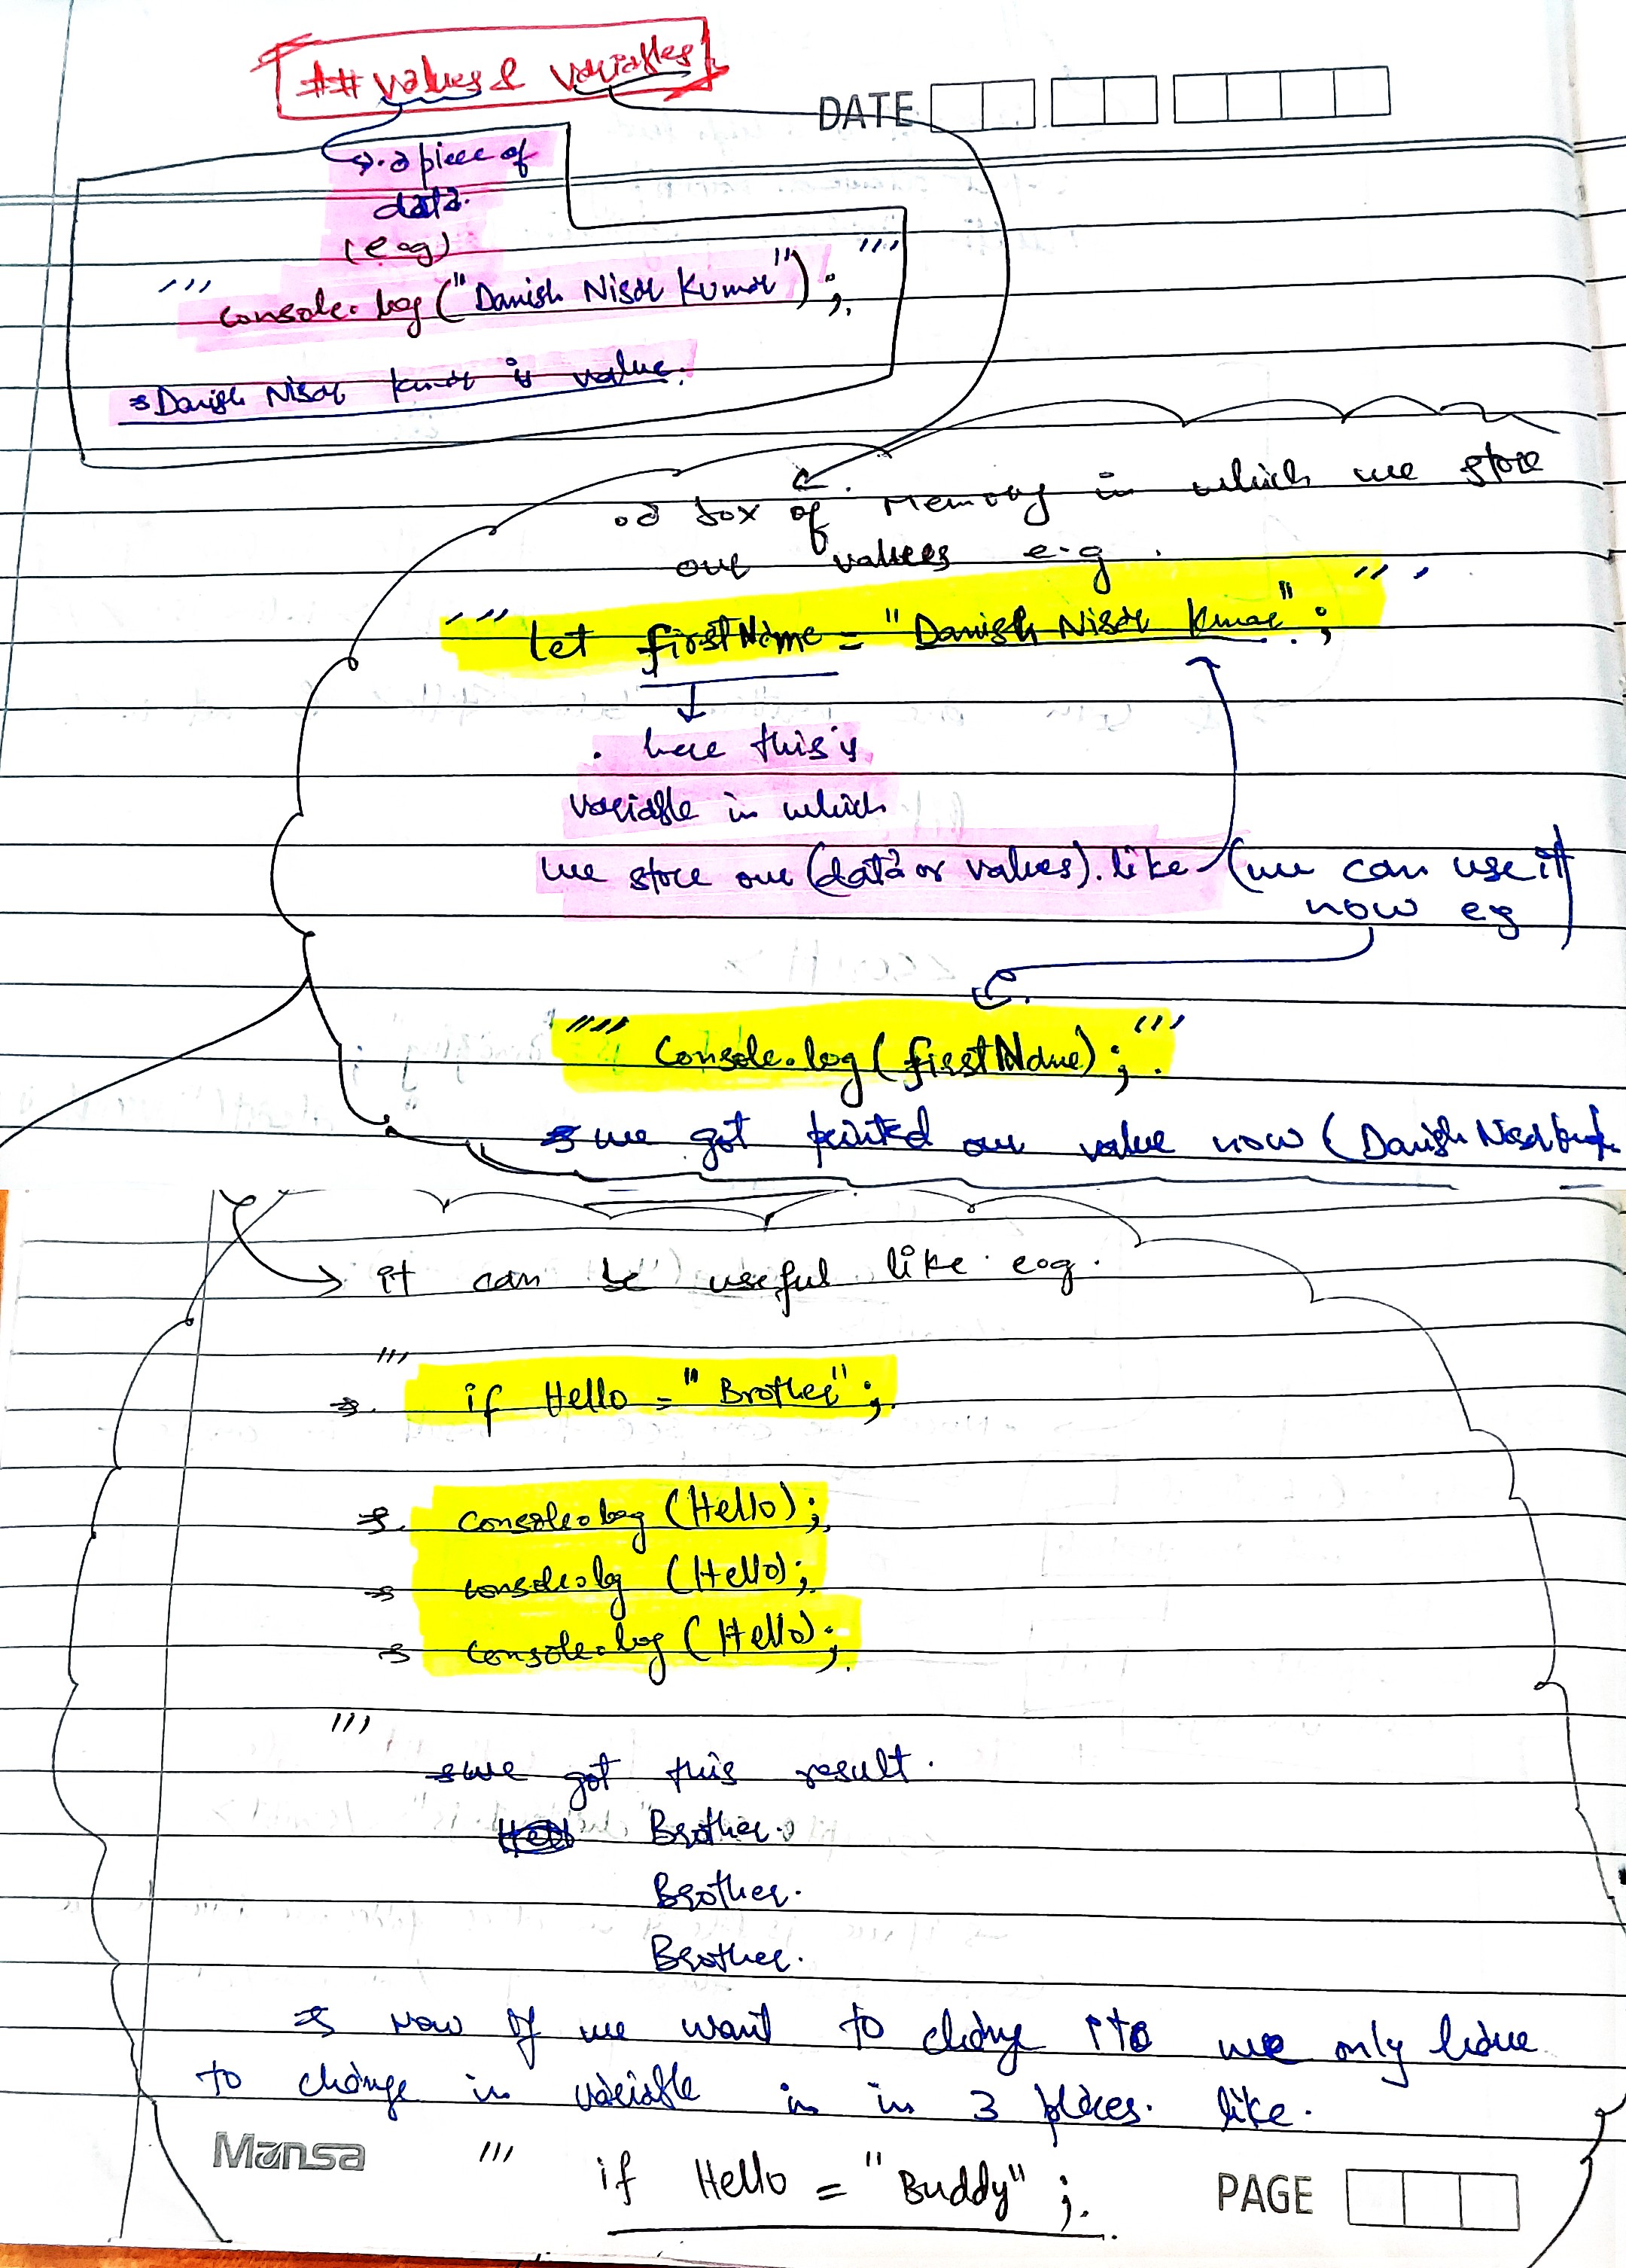 ## values & variables
DATE
→ . a piece of
data.
(e.g)
''' console.log("Danish Nisar Kumar"); '''
→ Danish Nisar Kumar is value.
. a box of memory in which we store
our values e.g.
''' let firstName = "Danish Nisar Kumar"; '''
. here this is
variable in which
we store our (data or values). like (we can use it
now eg
''' console.log(firstName); '''
→ we got printed our value now (Danish Nisar
→ it can be useful like e.g.
'''
→ if Hello = "Brother";
→ console.log (Hello);
→ console.log (Hello);
→ console.log (Hello);
'''
→ we got this result.
Brother.
Brother.
Brother.
→ Now if we want to change we only have
to change in variable in in 3 places. like.
''' if Hello = "Buddy";
Mansa
PAGE